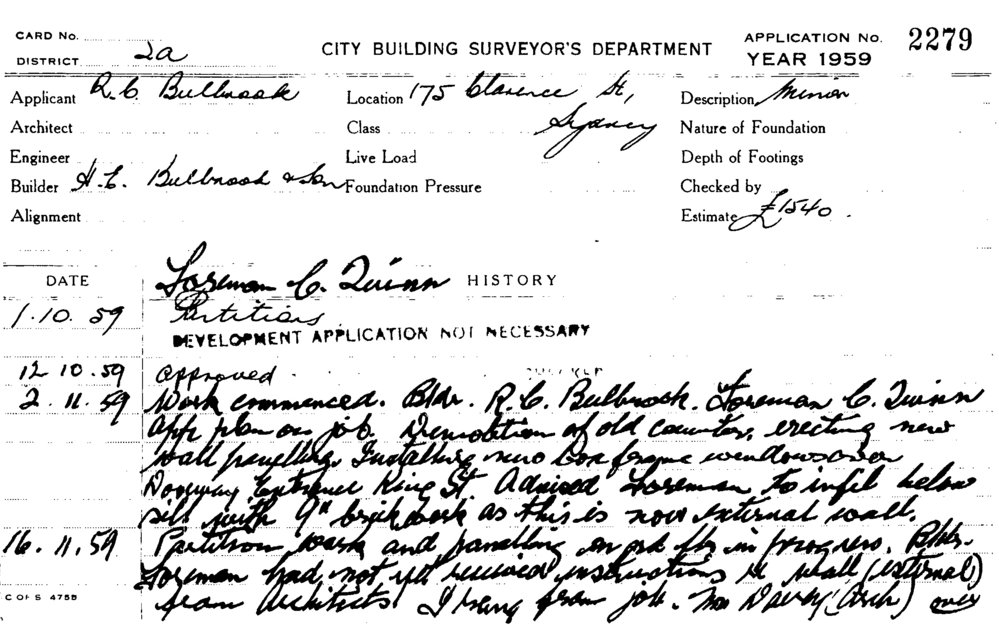 CARD No.
DISTRICT 2a
CITY BUILDING SURVEYOR'S DEPARTMENT
APPLICATION No. 2279
YEAR 1959
Applicant R. C. Bulbrook
Location 175 Clarence St,
Sydney
Description Minor
Architect
Class
Nature of Foundation
Engineer
Live Load
Depth of Footings
Builder H. C. Bulbrook & Son
Foundation Pressure
Checked by
Alignment
Estimate £1540.
DATE
Foreman C. Quinn HISTORY
1.10.59 Partitions
DEVELOPMENT APPLICATION NOT NECESSARY
12.10.59 approved.
2.11.59 Work commenced. Bldr. R. C. Bulbrook. Foreman C. Quinn
App. plan on job. Demolition of old counter, erecting new
wall panelling. Installing new box frame windows over
Doorway Entrance King St. Advised Foreman to infil below
sill with 9" brickwork as this is now external wall.
16.11.59 Partition work and panelling on grd flr in progress. Bldr.
Foreman had not yet received instructions re wall (external)
from Architects. I rang from job. Mr Davey (Arch) over
C OF S 4755